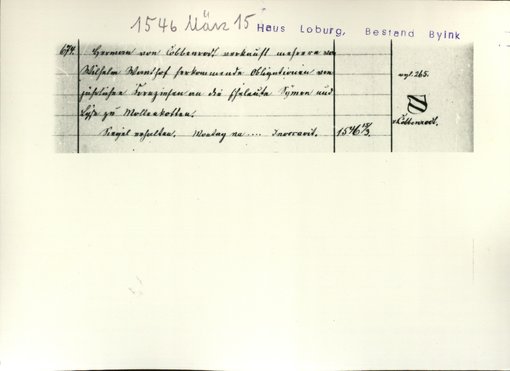 1546 März 15
Haus Loburg, Bestand Byink
674. Herman von Cobbenrodt verkauft mehrere von
Wilhelm herkommende Obligationen von
jährlichen Kornzinsen an die Eheleute Symon und
zu
Siegel erhalten. Montag na .... Invocavit. 1546 15/3.
vgl. 265.
v. Cobbenrodt.